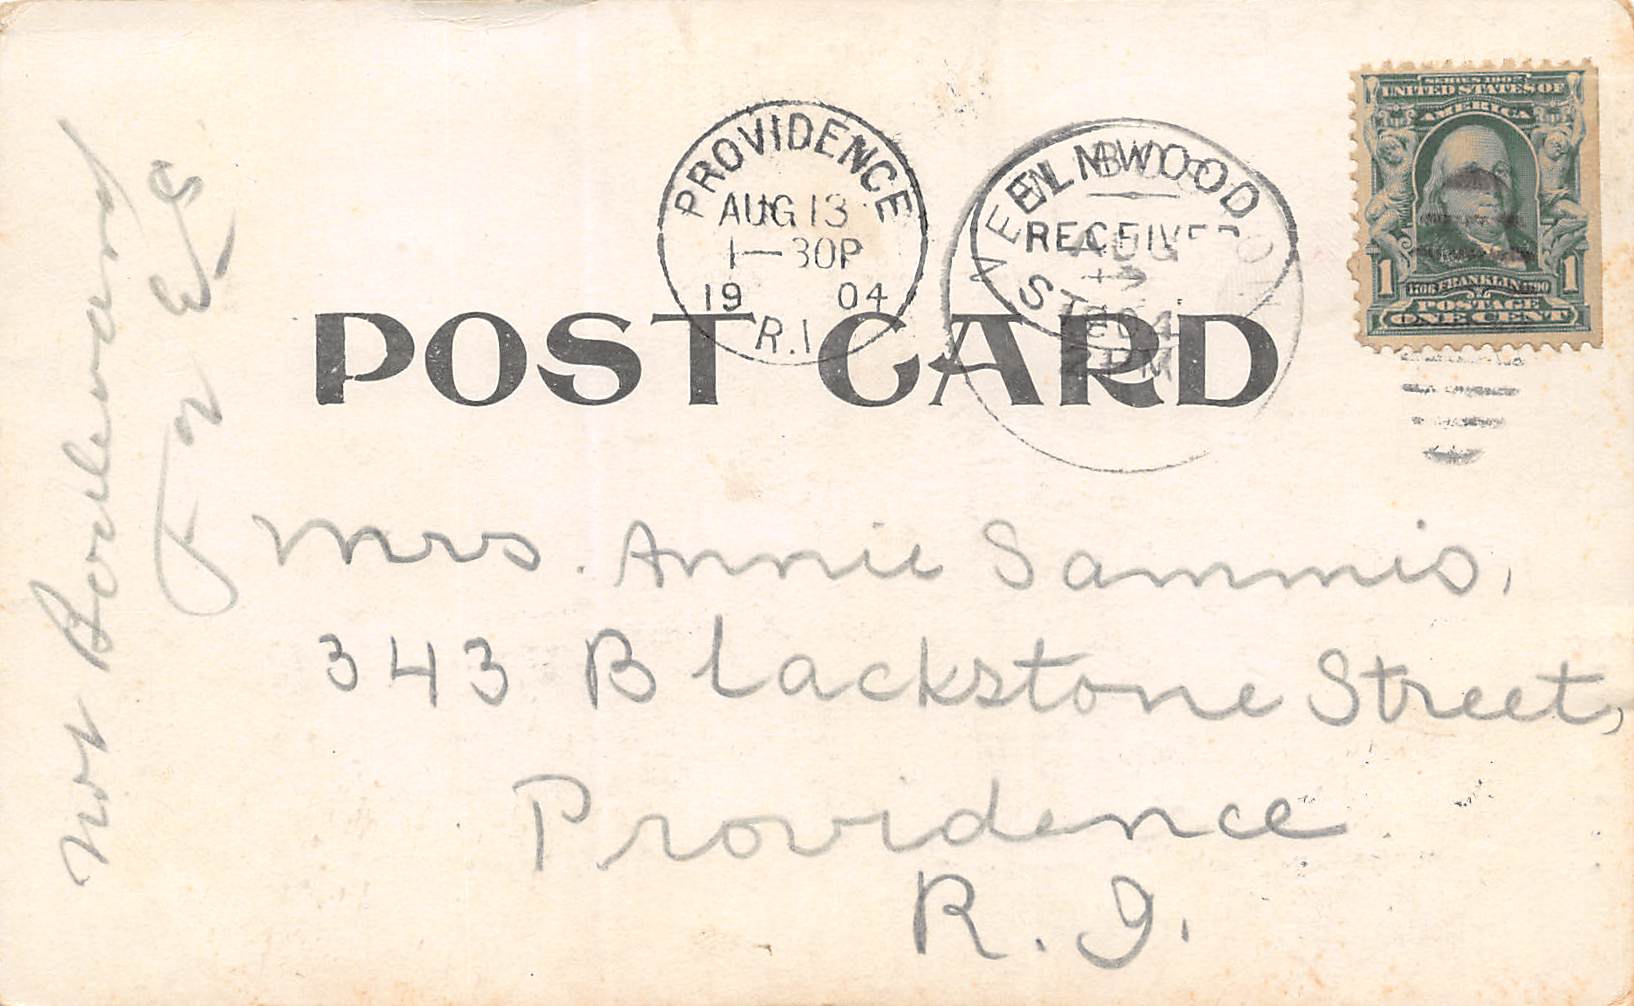 SERIES 1902
UNITED STATES OF
AMERICA
1 1706 FRANKLIN 1790 1
POSTAGE
ONE CENT
PROVIDENCE
AUG 13
1—30P
19 04
R.I.
ELMWOOD
RECEIVED
AUG
1904
PM
POST CARD
Mrs. Annie Sammis,
343 Blackstone Street,
Providence
R. I.